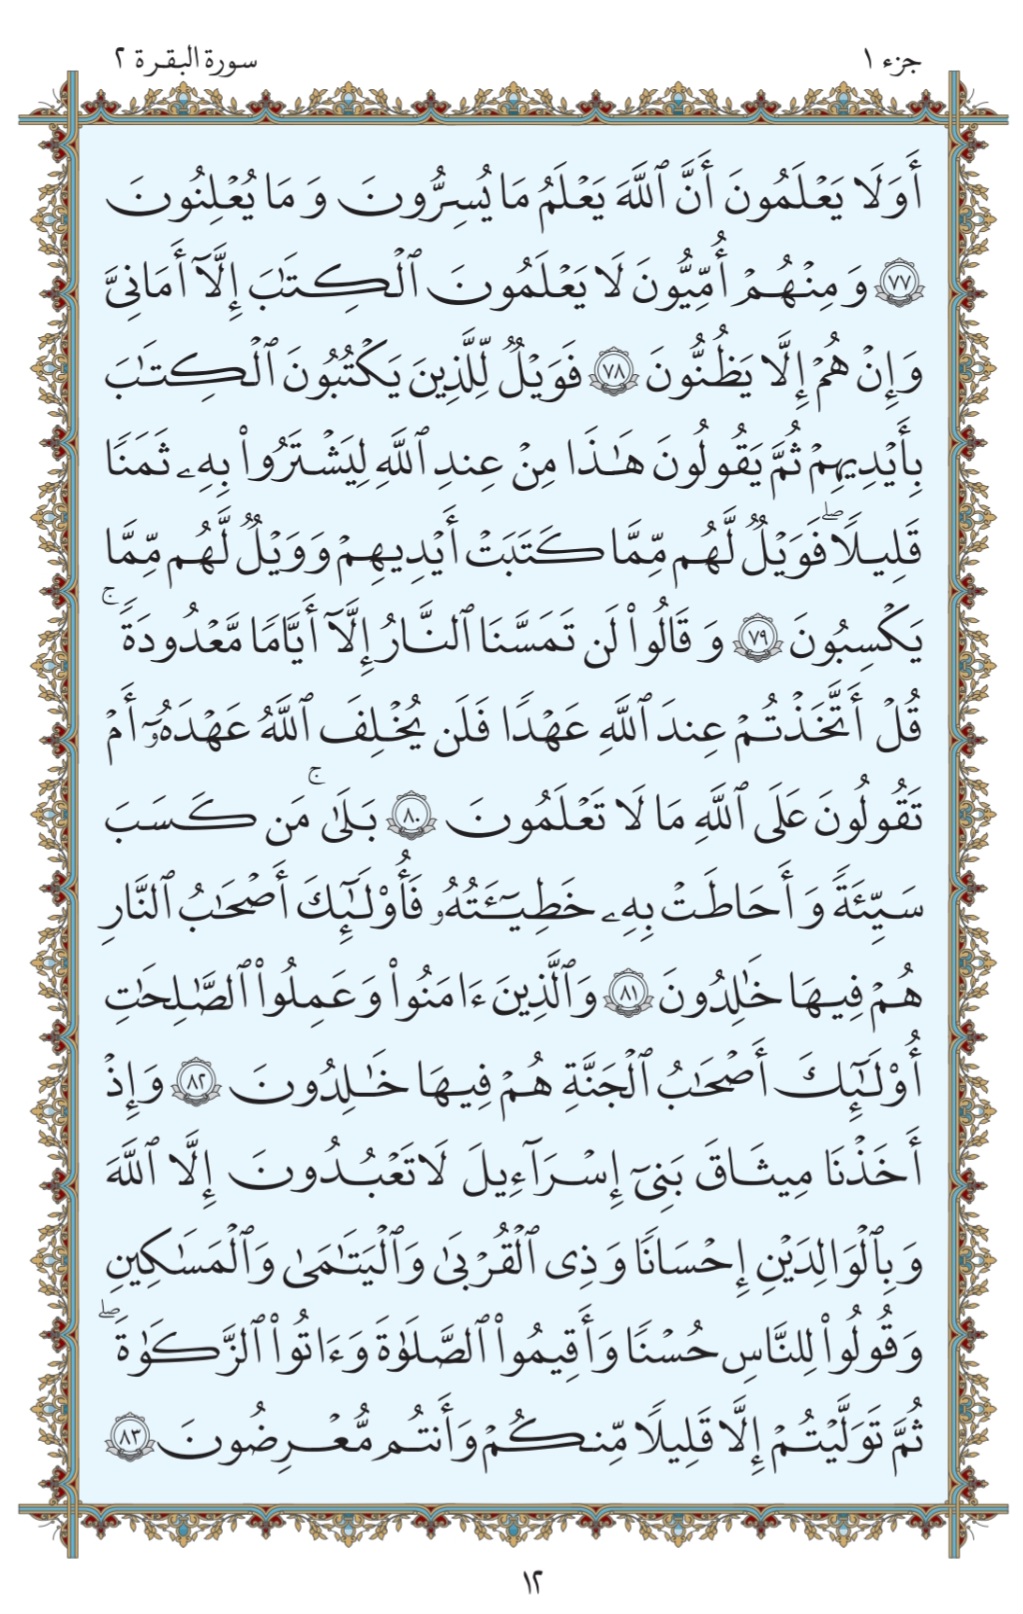 جزء ١
سورة البقرة ٢
أَوَلَا يَعْلَمُونَ أَنَّ ٱللَّهَ يَعْلَمُ مَا يُسِرُّونَ وَمَا يُعْلِنُونَ
٧٧ وَمِنْهُمْ أُمِّيُّونَ لَا يَعْلَمُونَ ٱلْكِتَٰبَ إِلَّآ أَمَانِىَّ
وَإِنْ هُمْ إِلَّا يَظُنُّونَ ٧٨ فَوَيْلٌ لِّلَّذِينَ يَكْتُبُونَ ٱلْكِتَٰبَ
بِأَيْدِيهِمْ ثُمَّ يَقُولُونَ هَٰذَا مِنْ عِندِ ٱللَّهِ لِيَشْتَرُوا۟ بِهِۦ ثَمَنًا
قَلِيلًا ۖ فَوَيْلٌ لَّهُم مِّمَّا كَتَبَتْ أَيْدِيهِمْ وَوَيْلٌ لَّهُم مِّمَّا
يَكْسِبُونَ ٧٩ وَقَالُوا۟ لَن تَمَسَّنَا ٱلنَّارُ إِلَّآ أَيَّامًا مَّعْدُودَةً ۚ
قُلْ أَتَّخَذْتُمْ عِندَ ٱللَّهِ عَهْدًا فَلَن يُخْلِفَ ٱللَّهُ عَهْدَهُۥٓ أَمْ
تَقُولُونَ عَلَى ٱللَّهِ مَا لَا تَعْلَمُونَ ٨٠ بَلَىٰ ۚ مَن كَسَبَ
سَيِّئَةً وَأَحَاطَتْ بِهِۦ خَطِيٓـَٔتُهُۥ فَأُو۟لَٰٓئِكَ أَصْحَٰبُ ٱلنَّارِ
هُمْ فِيهَا خَٰلِدُونَ ٨١ وَٱلَّذِينَ ءَامَنُوا۟ وَعَمِلُوا۟ ٱلصَّٰلِحَٰتِ
أُو۟لَٰٓئِكَ أَصْحَٰبُ ٱلْجَنَّةِ هُمْ فِيهَا خَٰلِدُونَ ٨٢ وَإِذْ
أَخَذْنَا مِيثَاقَ بَنِىٓ إِسْرَآءِيلَ لَا تَعْبُدُونَ إِلَّا ٱللَّهَ
وَبِٱلْوَالِدَيْنِ إِحْسَانًا وَذِى ٱلْقُرْبَىٰ وَٱلْيَتَٰمَىٰ وَٱلْمَسَٰكِينِ
وَقُولُوا۟ لِلنَّاسِ حُسْنًا وَأَقِيمُوا۟ ٱلصَّلَوٰةَ وَءَاتُوا۟ ٱلزَّكَوٰةَ ۖ
ثُمَّ تَوَلَّيْتُمْ إِلَّا قَلِيلًا مِّنكُمْ وَأَنتُم مُّعْرِضُونَ ٨٣
١٢